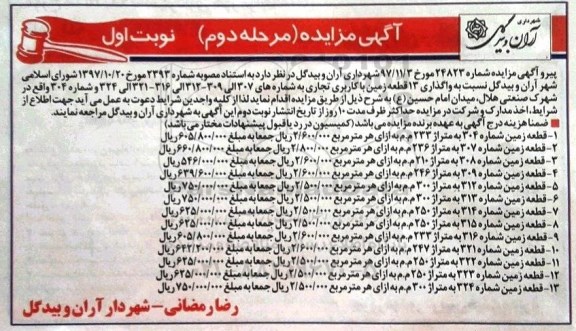 شهرداری
آران و بیدگل
آگهی مزایده (مرحله دوم)    نوبت اول
پیرو آگهی مزایده شماره ۲۴۸۲۳ مورخ ۹۷/۱۱/۳ شهرداری آران و بیدگل در نظر دارد به استناد مصوبه شماره ۲۳۹۳ مورخ ۱۳۹۷/۱۰/۲۰ شورای اسلامی
شهر آران و بیدگل نسبت به واگذاری ۱۳ قطعه زمین با کاربری تجاری به شماره های ۳۰۷ الی ۳۰۹-۳۱۲ الی ۳۱۶-۳۲۱ الی ۳۲۴ و شماره ۳۰۴ واقع در
شهرک صنعتی هلال، میدان امام حسین (ع) به شرح ذیل از طریق مزایده اقدام نماید لذا از کلیه واجدین شرایط دعوت به عمل می آید جهت اطلاع از
شرایط، اخذ مدارک و شرکت در مزایده حداکثر ظرف مدت ۱۰ روز از تاریخ انتشار نوبت دوم این آگهی به شهرداری آران و بیدگل مراجعه نمایند.
ضمنا هزینه درج آگهی به عهده برنده مزایده می باشد. (کمیسیون در رد یا قبول پیشنهادات مختار می باشد)
۱- قطعه زمین شماره ۳۰۴ به متراژ ۲۳۳ م.م به ازای هر مترمربع ۲/۶۰۰/۰۰۰ ریال جمعا به مبلغ ۶۰۵/۸۰۰/۰۰۰ ریال
۲- قطعه زمین شماره ۳۰۷ به متراژ ۲۳۶ م.م به ازای هر مترمربع ۲/۸۰۰/۰۰۰ ریال جمعا به مبلغ ۶۶۰/۸۰۰/۰۰۰ ریال
۳- قطعه زمین شماره ۳۰۸ به متراژ ۲۱۰ م.م به ازای هر مترمربع ۲/۶۰۰/۰۰۰ ریال جمعا به مبلغ ۵۴۶/۰۰۰/۰۰۰ ریال
۴- قطعه زمین شماره ۳۰۹ به متراژ ۲۴۶ م.م به ازای هر مترمربع ۲/۶۰۰/۰۰۰ ریال جمعا به مبلغ ۶۳۹/۶۰۰/۰۰۰ ریال
۵- قطعه زمین شماره ۳۱۲ به متراژ ۳۰۰ م.م به ازای هر مترمربع ۲/۵۰۰/۰۰۰ ریال جمعا به مبلغ ۷۵۰/۰۰۰/۰۰۰ ریال
۶- قطعه زمین شماره ۳۱۳ به متراژ ۳۰۰ م.م به ازای هر مترمربع ۲/۵۰۰/۰۰۰ ریال جمعا به مبلغ ۷۵۰/۰۰۰/۰۰۰ ریال
۷- قطعه زمین شماره ۳۱۴ به متراژ ۲۵۰ م.م به ازای هر مترمربع ۲/۵۰۰/۰۰۰ ریال جمعا به مبلغ ۶۲۵/۰۰۰/۰۰۰ ریال
۸- قطعه زمین شماره ۳۱۵ به متراژ ۲۵۰ م.م به ازای هر مترمربع ۲/۵۰۰/۰۰۰ ریال جمعا به مبلغ ۶۲۵/۰۰۰/۰۰۰ ریال
۹- قطعه زمین شماره ۳۱۶ به متراژ ۲۳۳ م.م به ازای هر مترمربع ۲/۶۰۰/۰۰۰ ریال جمعا به مبلغ ۶۰۵/۸۰۰/۰۰۰ ریال
۱۰- قطعه زمین شماره ۳۲۱ به متراژ ۲۴۷ م.م به ازای هر مترمربع ۲/۶۰۰/۰۰۰ ریال جمعا به مبلغ ۶۴۲/۲۰۰/۰۰۰ ریال
۱۱- قطعه زمین شماره ۳۲۲ به متراژ ۲۵۰ م.م به ازای هر مترمربع ۲/۵۰۰/۰۰۰ ریال جمعا به مبلغ ۶۲۵/۰۰۰/۰۰۰ ریال
۱۲- قطعه زمین شماره ۳۲۳ به متراژ ۲۵۰ م.م به ازای هر مترمربع ۲/۵۰۰/۰۰۰ ریال جمعا به مبلغ ۶۲۵/۰۰۰/۰۰۰ ریال
۱۳- قطعه زمین شماره ۳۲۴ به متراژ ۳۰۰ م.م به ازای هر مترمربع ۲/۵۰۰/۰۰۰ ریال جمعا به مبلغ ۷۵۰/۰۰۰/۰۰۰ ریال
رضا رمضانی - شهردار آران و بیدگل